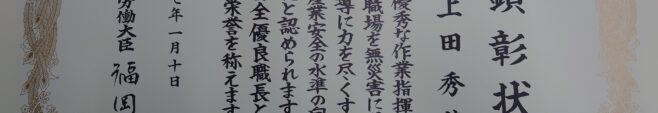 顕彰状
上田秀
優秀な作業指揮
職場を無災害に
導に力を尽くす
産業安全の水準の向
と認められます
全優良職長と
栄誉を称えます
年一月十日
労働大臣 福岡